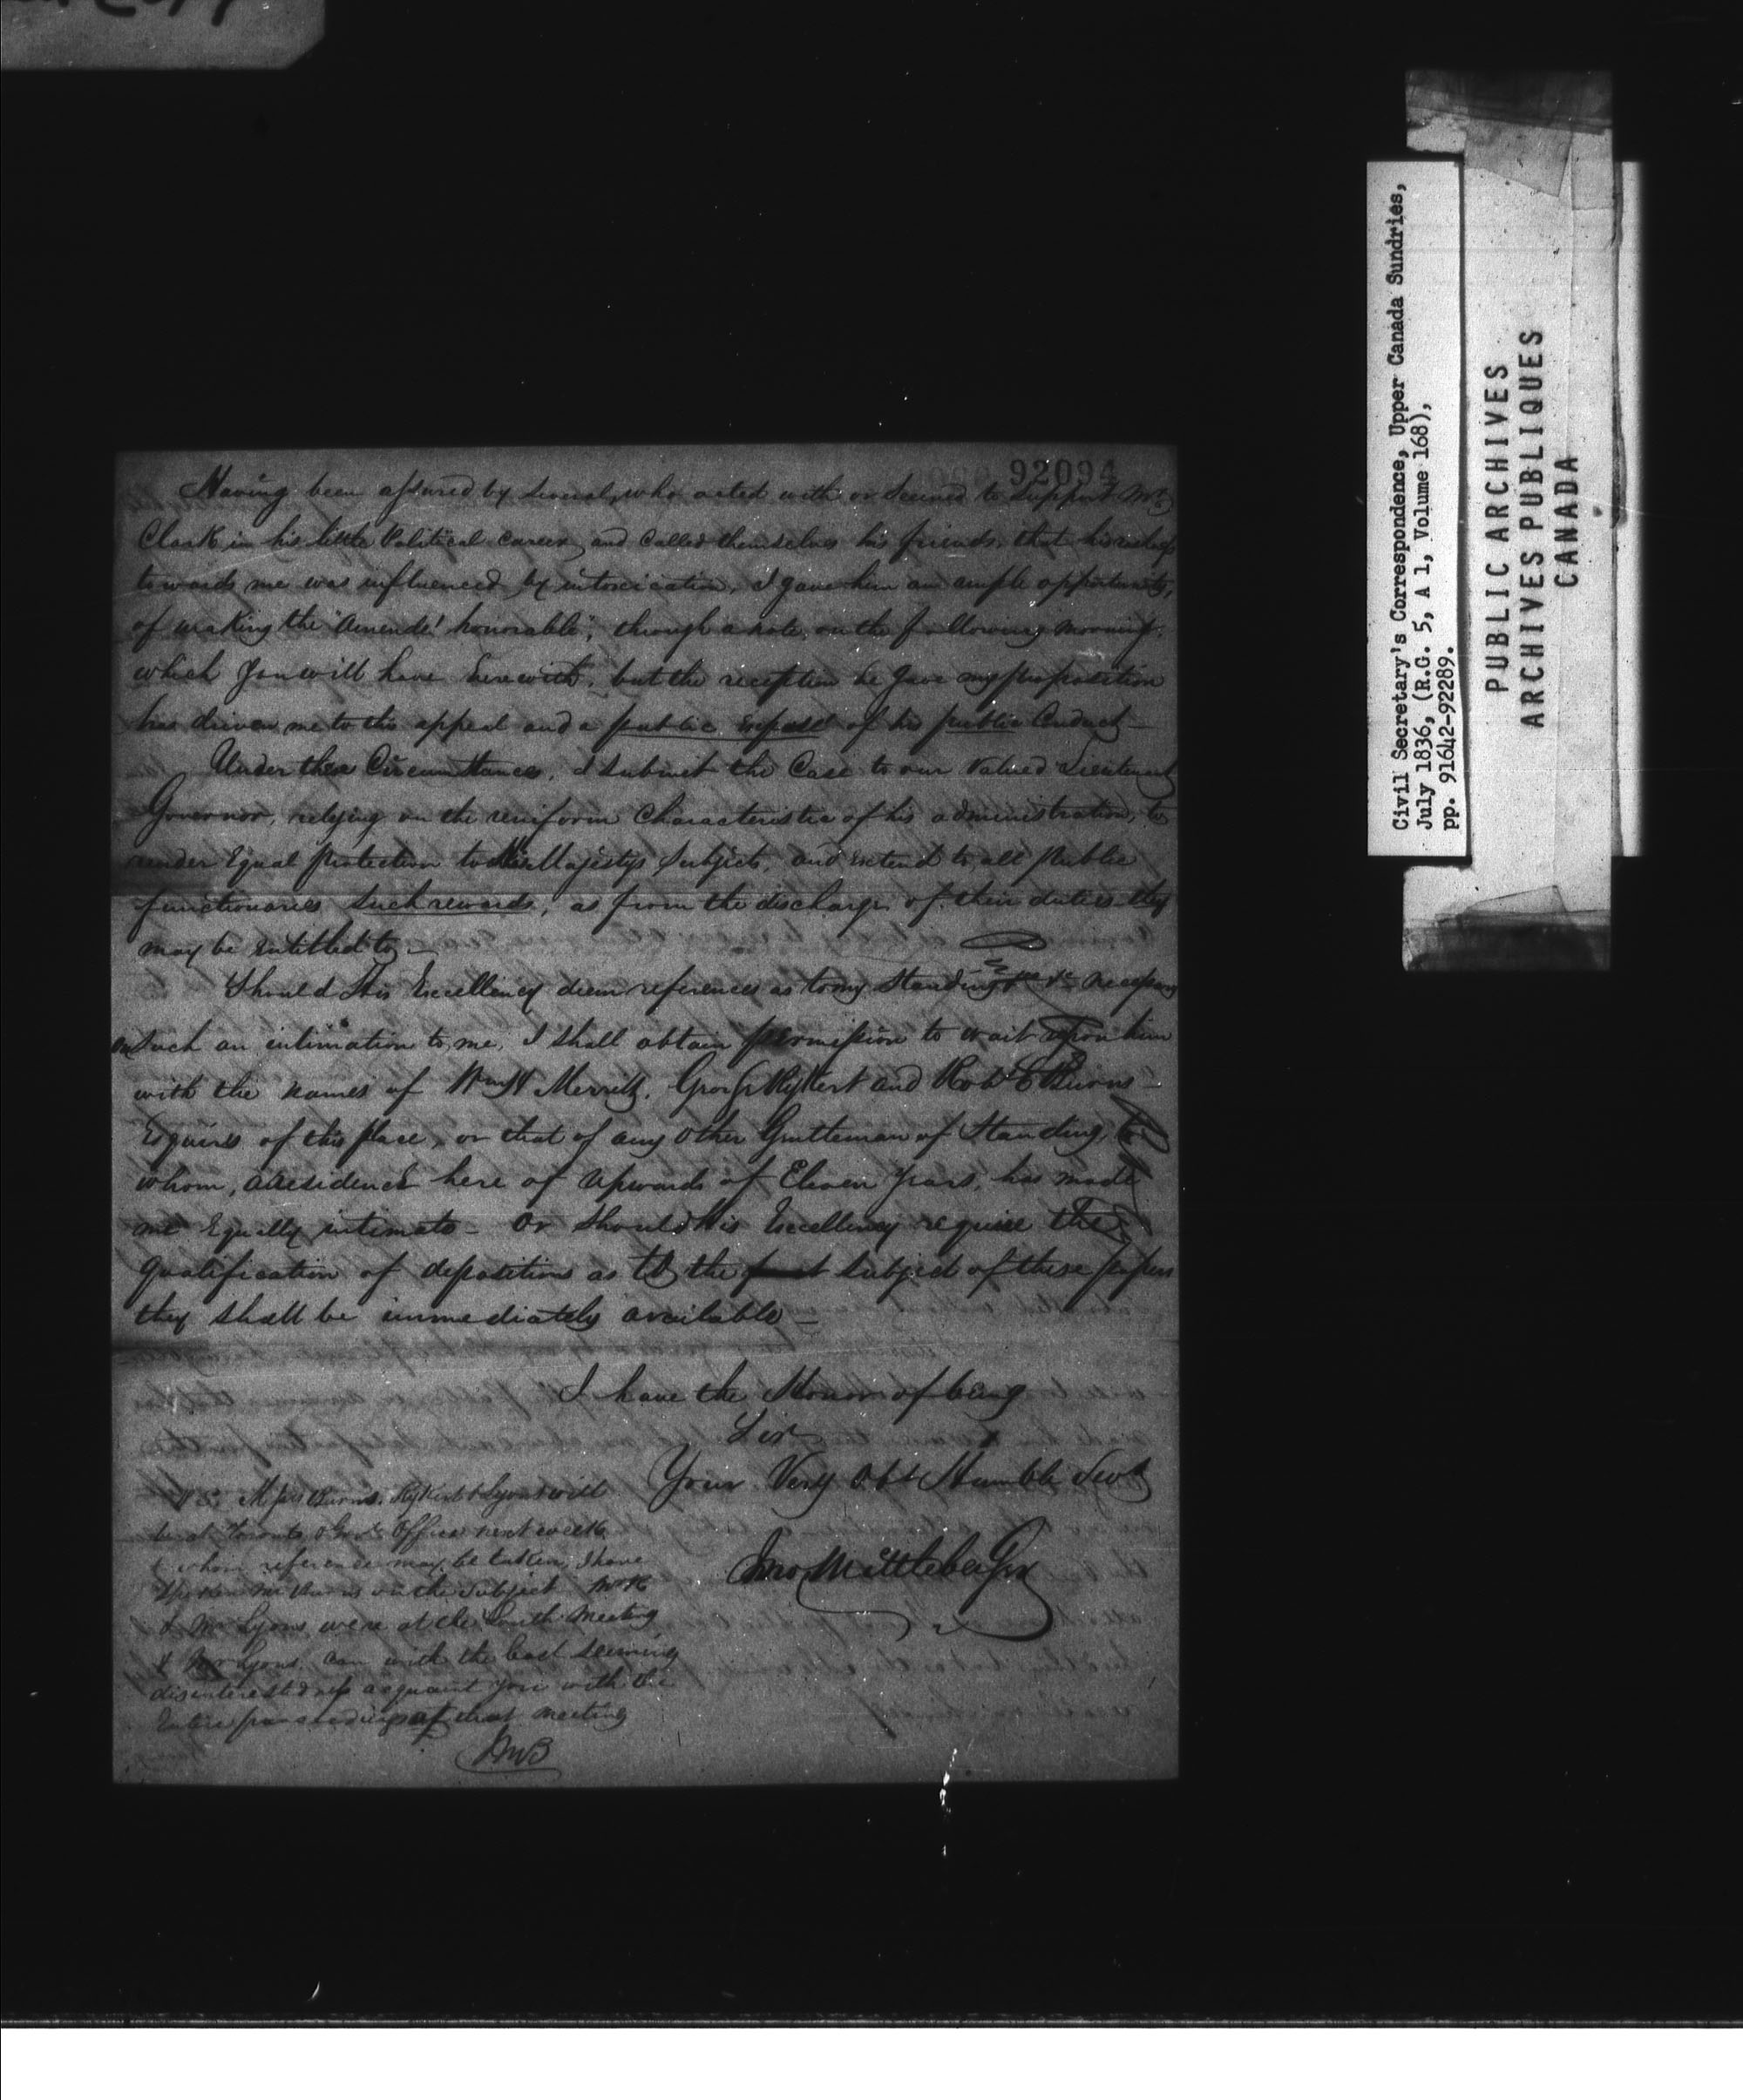 92094
Having been assured by several, who acted with or seemed to support Mr
Clark in his little Political Career and called themselves his friends, that his
towards me was influenced by intoxication, I gave him an ample opportunity,
of making the "Amende' honorable", through a note, on the following morning.
which you will have herewith, but the reception he gave my proposition
has driven me to this appeal and a public exposé of his public Conduct —
Under these Circumstances, I submit the Case to our Valued Lieutenant
Governor, relying on the uniform Characteristic of his administration, to
render Equal protection to His Majestys Subjects, and extend to all Public
functionaries such rewards, as from the discharge of their duties they
may be entitled to —
Should His Excellency deem references as to my Standing &c necessary
on such an intimation to me, I shall obtain permission to wait upon him
with the names of Wm H Merritt, Geo Rykert and Robt E Burns
Esquires of this place, or that of any other Gentleman of Standing, to
whom, a residence here of upwards of Eleven Years, has made
me Equally intimate — Or should His Excellency require the
qualification of depositions as to the subject of these papers
they shall be immediately available —
I have the Honor of being
Sir
Your Very Obt Humble Servt
Jno Mittleberger
P.S. Messrs Burns, Rykert & Lyons will
be at Toronto Office next week
to whom reference may be taken, I have
spoken Mr Burns on the subject Mr R
& Mr Lyons were at the South Meeting
& Mr Lyons can with the best seeming
disinterestedness acquaint you with the
Entire proceedings of that meeting
JMB
Civil Secretary's Correspondence, Upper Canada Sundries,
July 1836, (R.G. 5, A 1, Volume 168),
pp. 91642-92289.
PUBLIC ARCHIVES
ARCHIVES PUBLIQUES
CANADA